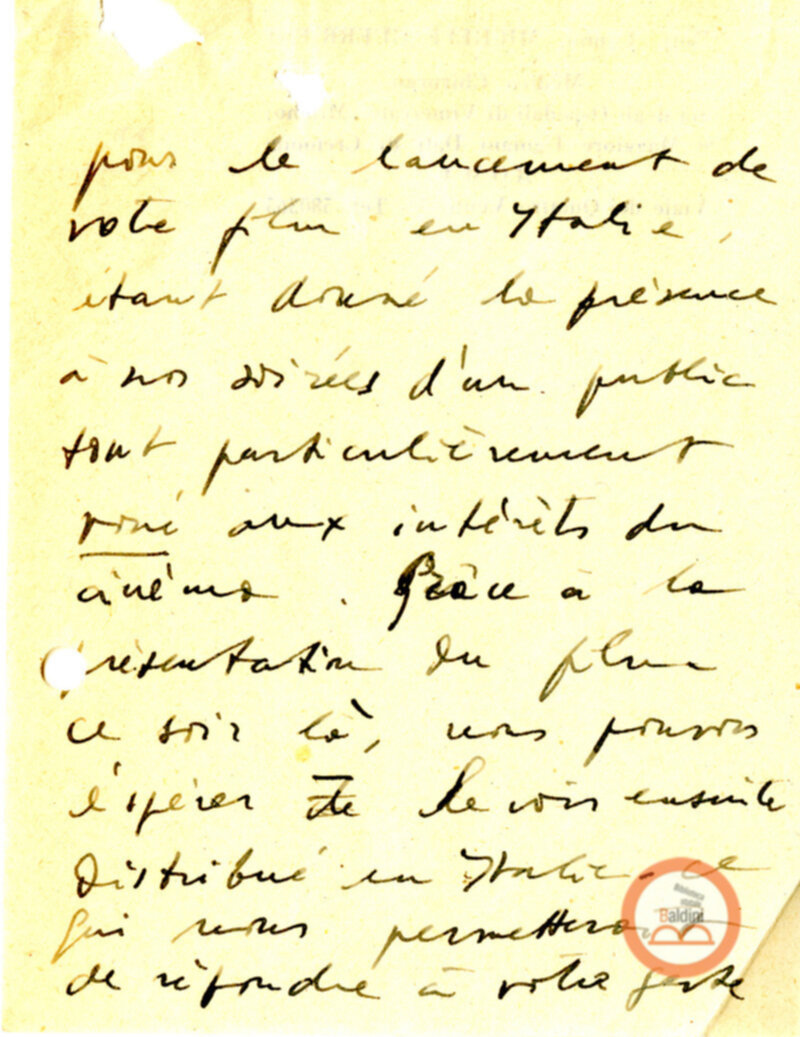 pour le lancement de
votre film en Italie,
étant donné la présence
à nos soirées d'un public
tout particulièrement
voué aux intérêts du
cinéma. Grâce à la
présentation du film
ce soir là, nous pouvons
espérer de le voir ensuite
distribué en Italie. ce
qui nous permettera
de répondre à votre geste
Biblioteca
statale
Baldini